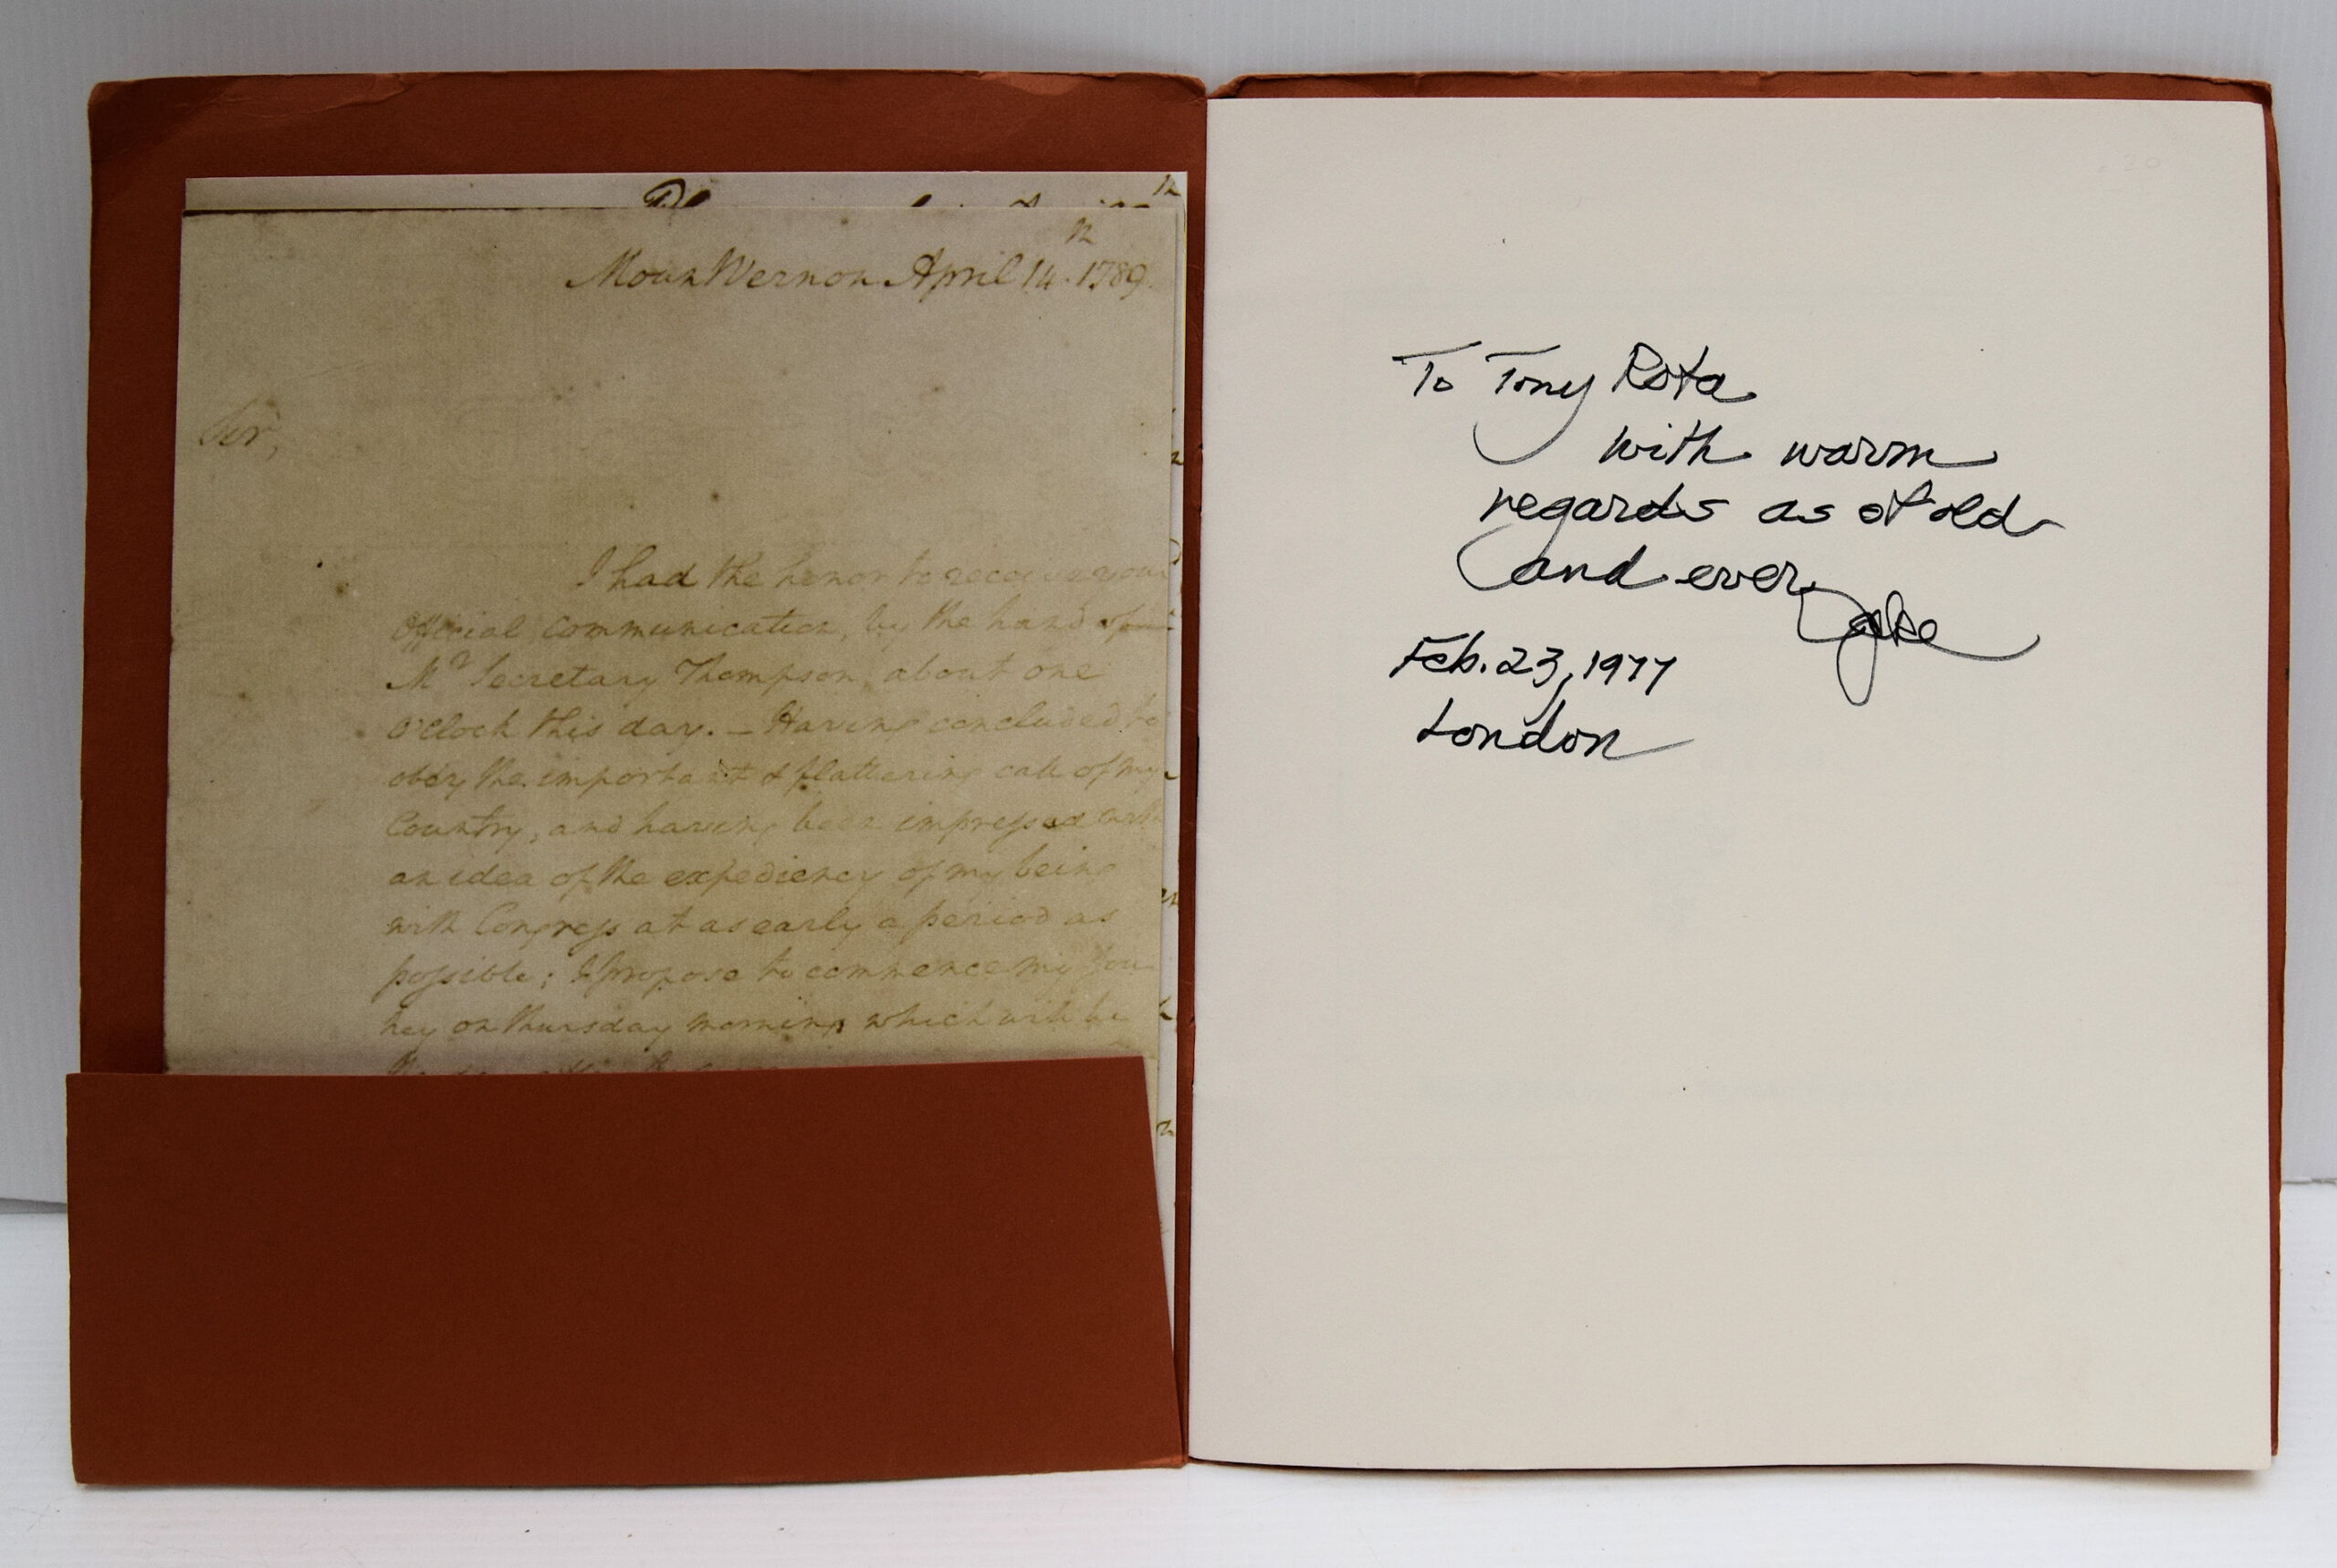 Mount Vernon April 14th. 1789.
Sir,
I had the honor to receive your
Official Communication, by the hand of
Mr Secretary Thompson, about one
o'clock this day. — Having concluded to
obey the important & flattering call of my
Country, and having been impressed with
an idea of the expediency of my being
with Congress at as early a period as
possible; I propose to commence my jour
ney on thursday morning which will be
To Tony Rota
with warm
regards as of old
and ever,
Jake
Feb. 23, 1977
London